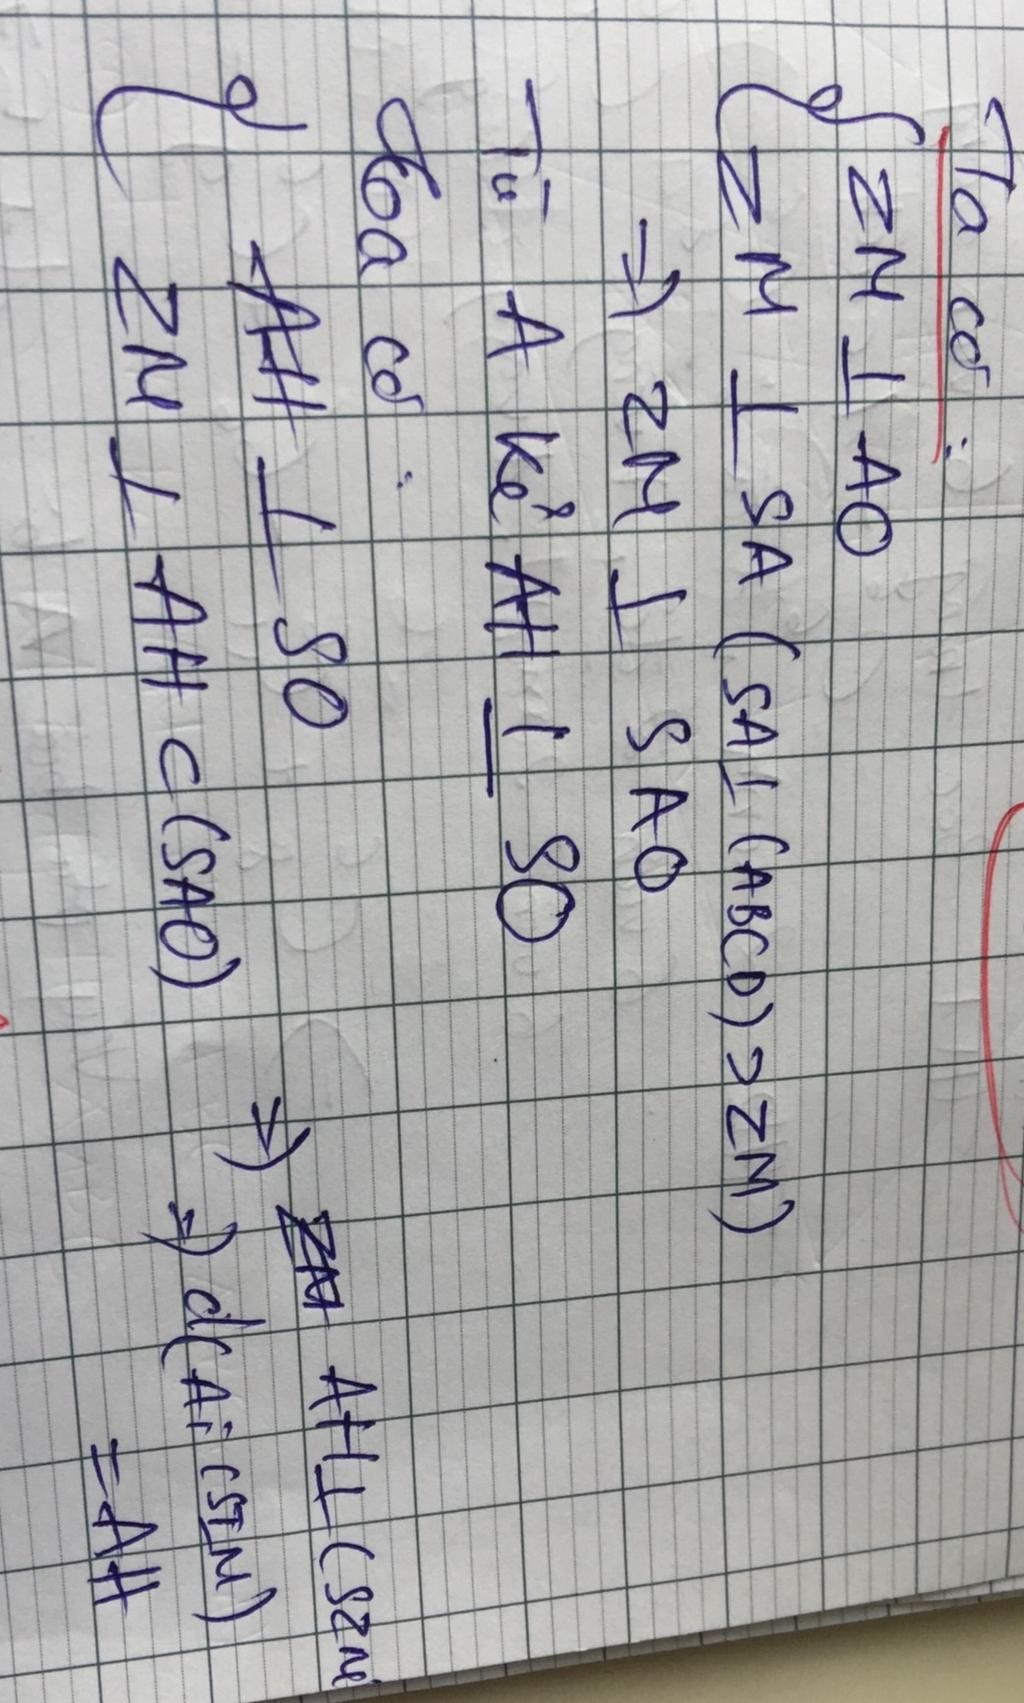 Ta có:
ZM ⊥ AO
ZM ⊥ SA (SA ⊥ (ABCD) ⊃ ZM)
=> ZM ⊥ SAO
Từ A kẻ AH ⊥ SO
Ta có:
AH ⊥ SO
ZM ⊥ AH ⊂ (SAO)
=> AH ⊥ (SZM
=> d(A; (SIM)
= AH